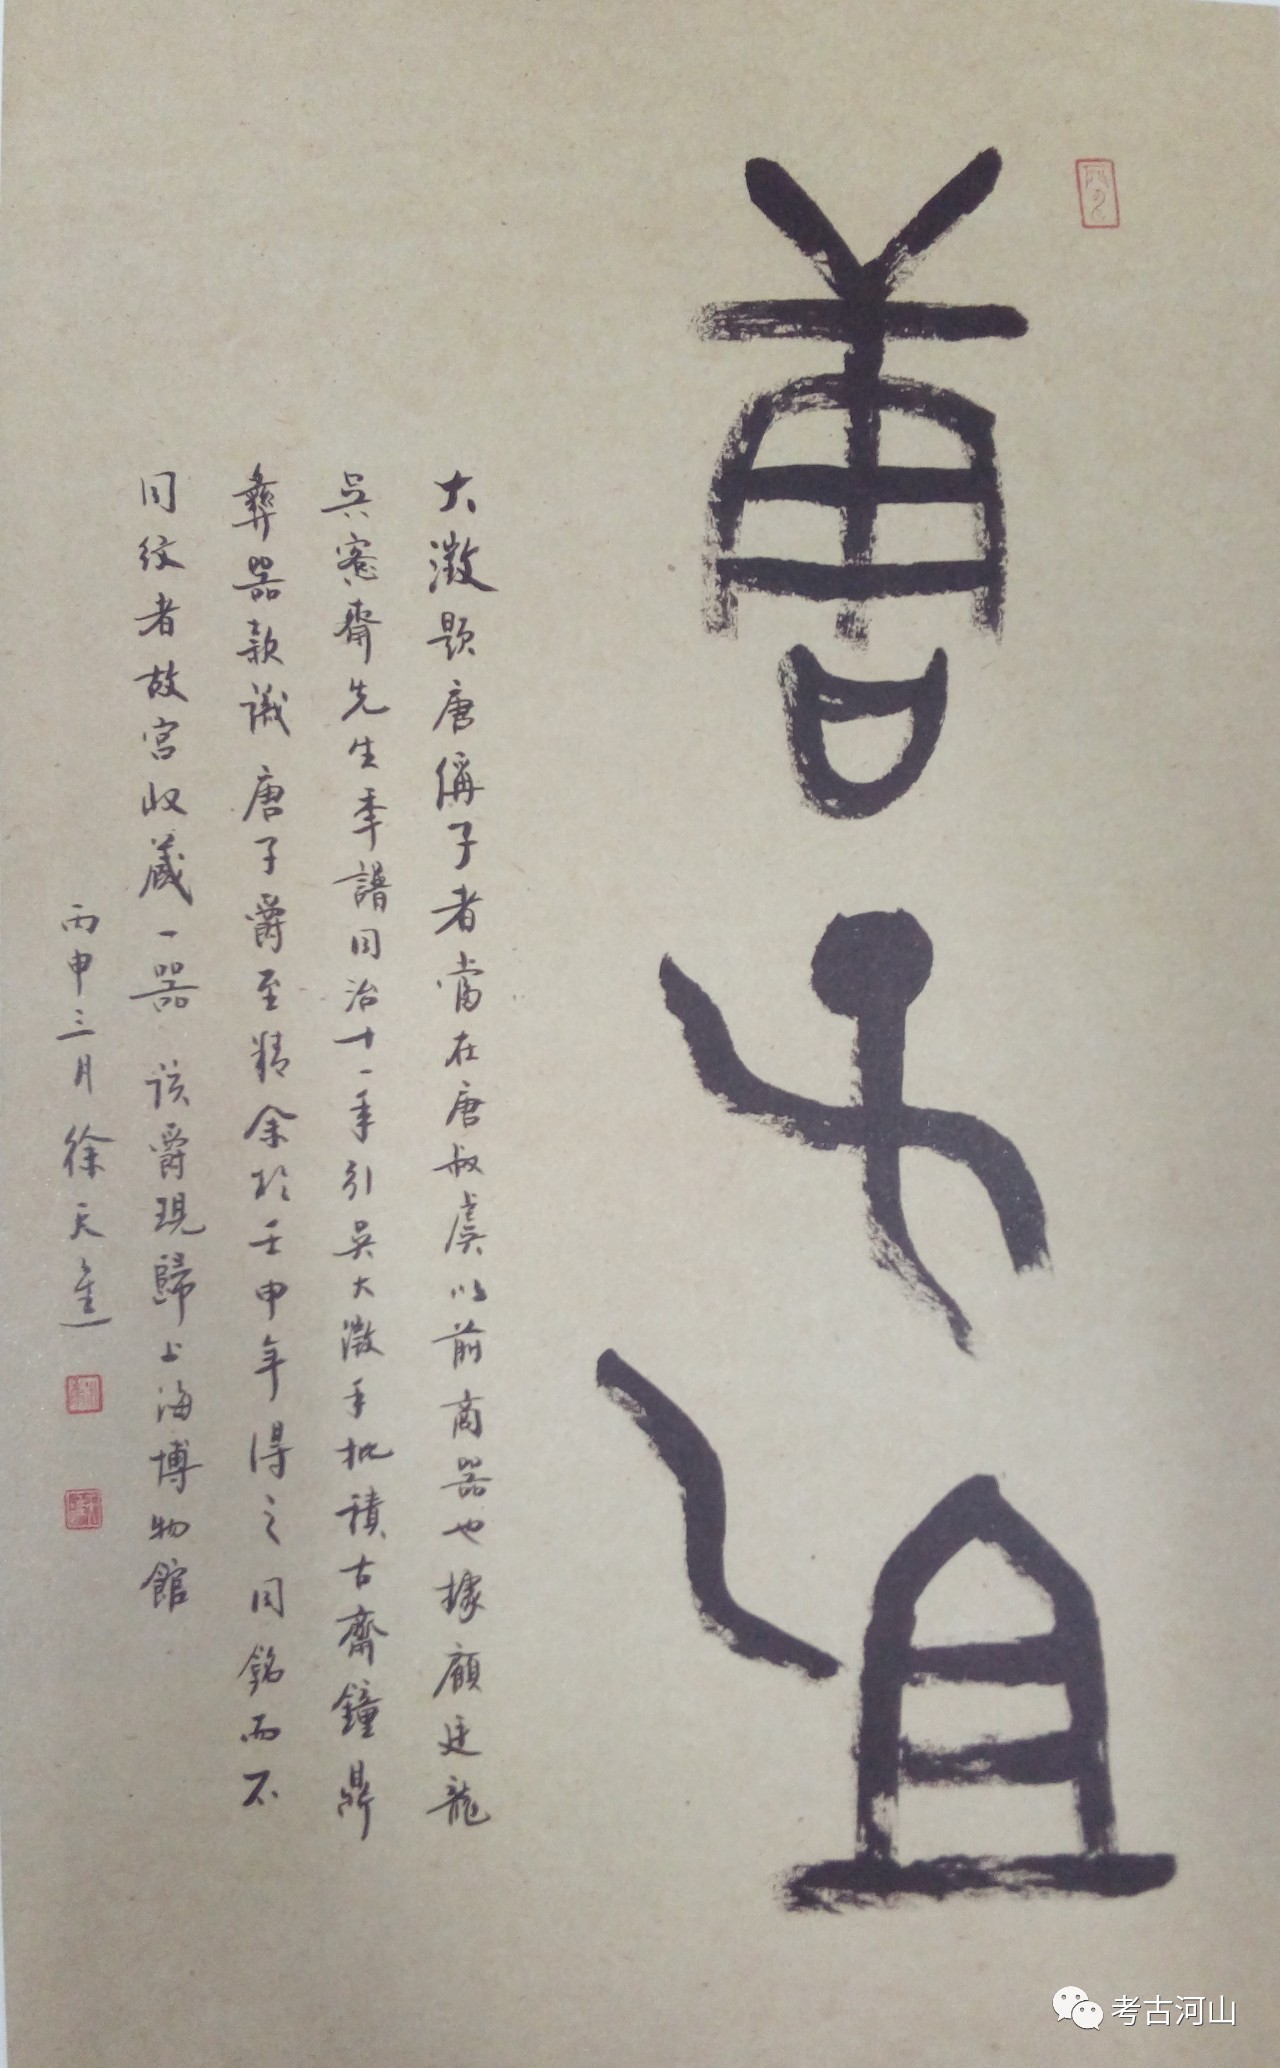 唐子且乙
大澂题唐偁子者當在唐叔虞以前商器也據顧廷龍
吴愙齋先生年譜同治十一年引吴大澂手批積古齋鐘鼎
彝器款識唐子爵至精余於壬申年得之同銘而不
同纹者故宫收藏一器 该爵現歸上海博物館
丙申三月徐天進
考古河山